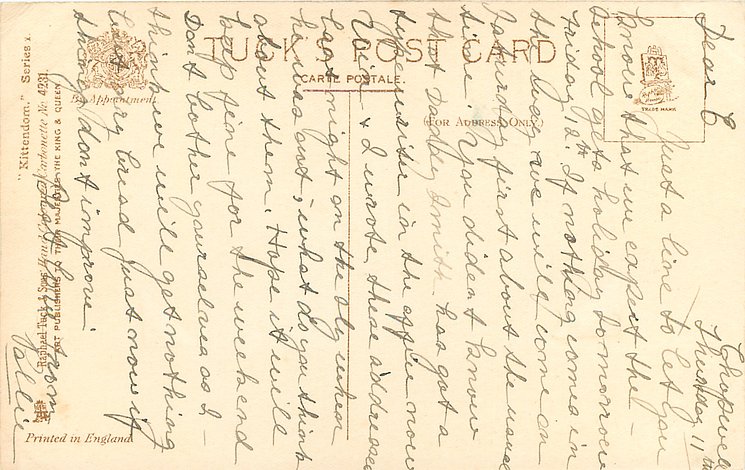 Chopwell
Thursday 11th
Dear C
Just a line to let you
know that we expect the -
school gets a holiday tomorrow
Friday 12th. If nothing comes in
the way we will come on
Saturday first about the usual
time. You didn't know
that Dolly Smith has got a
typewriter in the office now
& I wrote these addresses
last night on the sly when
he was out, what do you think
about them. Hope it will
keep fine for the weekend
Don't bother yourself as I -
think we will get nothing
but dry bread just now if
things don't improve.
love from
Nellie
TUCK'S POST CARD
CARTE POSTALE.
(FOR ADDRESS ONLY)
TRADE MARK
By Appointment
"Kittendom." Series I.
Raphael Tuck & Sons' Carbonette No 4231.
ART PUBLISHERS TO THEIR MAJESTIES THE KING & QUEEN
Printed in England